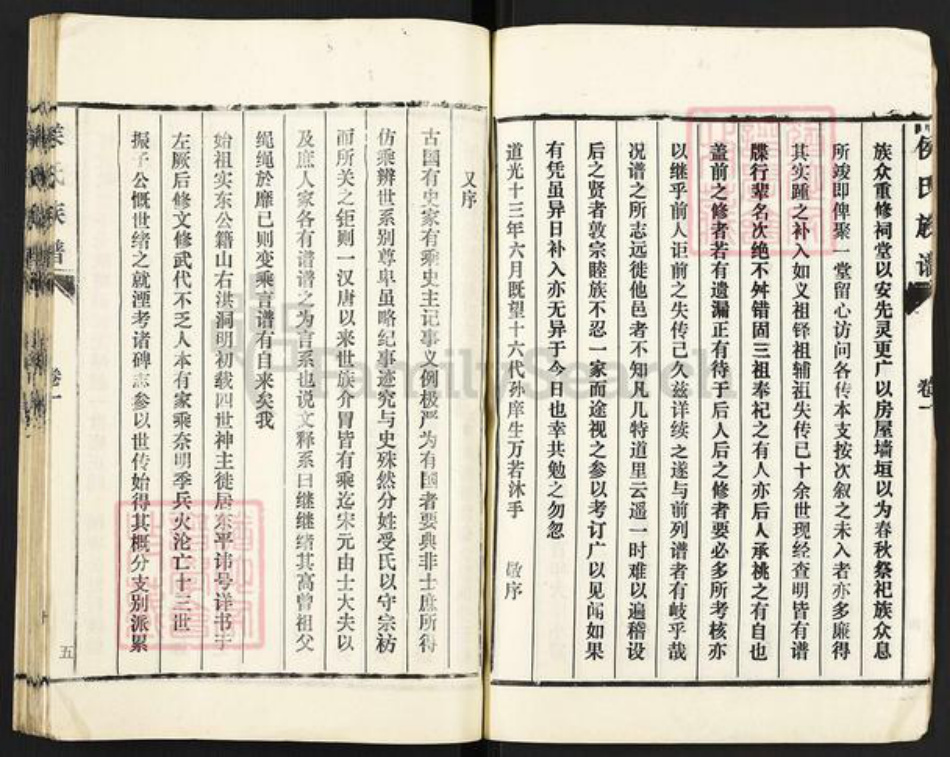 侯氏族谱
卷一
族众重修祠堂以安先灵更广以房屋墙垣以为春秋祭祀族众息
所竣即俾聚一堂留心访问各传本支按次叙之未入者亦多廉得
其实踵之补入如义祖铎祖辅祖失传已十余世现经查明皆有谱
牒行辈名次绝不舛错固三祖奉祀之有人亦后人承桃之有自也
盖前之修者若有遗漏正有待于后人后之修者要必多所考核亦
以继乎前人讵前之失传已久兹详续之遂与前列谱者有岐乎哉
况谱之所志远徙他邑者不知凡几特道里云遥一时难以遍稽设
后之贤者敦宗睦族不忍一家而途视之参以考订广以见闻如果
有凭虽异日补入亦无异于今日也幸共勉之勿忽
道光十三年六月既望十六代孙庠生万若沐手 敬序
又序
古国有史家有乘史主记事义例极严为有国者要典非士庶所得
仿乘辨世系别尊卑虽略纪事迹究与史殊然分姓受氏以守宗祊
而所关之钜则一汉唐以来世族介胄皆有乘迄宋元由士大夫以
及庶人家各有谱谱之为言系也说文释系曰继继绪其高曾祖父
绳绳於靡已则变乘言谱有自来矣我
始祖实东公籍山右洪洞明初载四世神主徙居东平讳号详书于
左厥后修文修武代不乏人本有家乘奈明季兵火沦亡十三世
振子公慨世绪之就湮考诸碑志参以世传始得其概分支别派累
氏族谱
卷一
五
FamilySearch